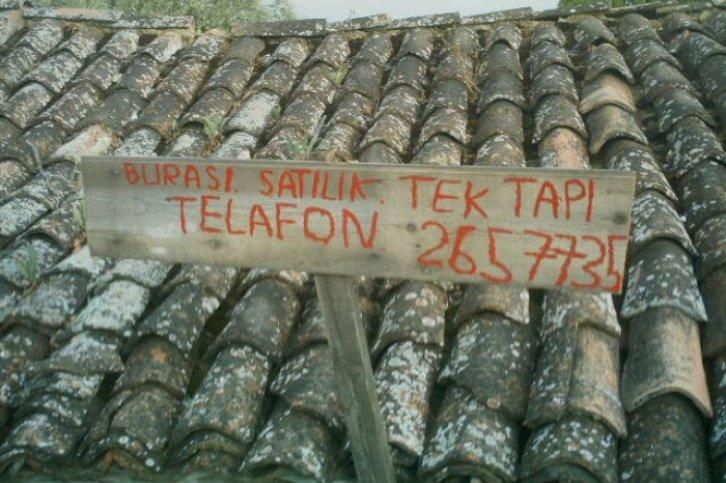 BURASI. SATILIK. TEK TAPI
TELAFON. 2657735